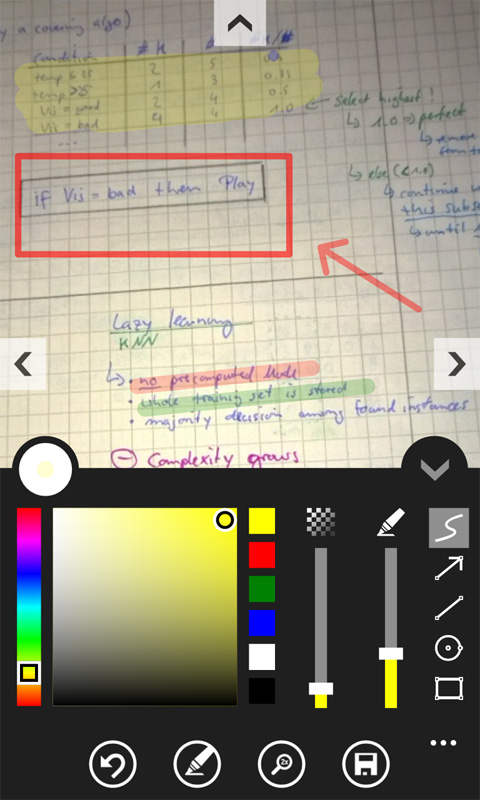 y a covering algo)
Condition # K #
temp ≤ 25 2 5
temp > 25 1 3 0.33
Vis = good 2 4 0.5
Vis = bad 4 4 1.0
...
Select highest!
↳ 1.0 ⇒ perfect
↳ remove
↳ else (<1.0)
↳ continue
this subse
↳ until
if Vis = bad then Play
Lazy learning
KNN
↳ • no precomputed Model
• whole training set is stored
• majority decision among found instances
⊖ Complexity grows
2x